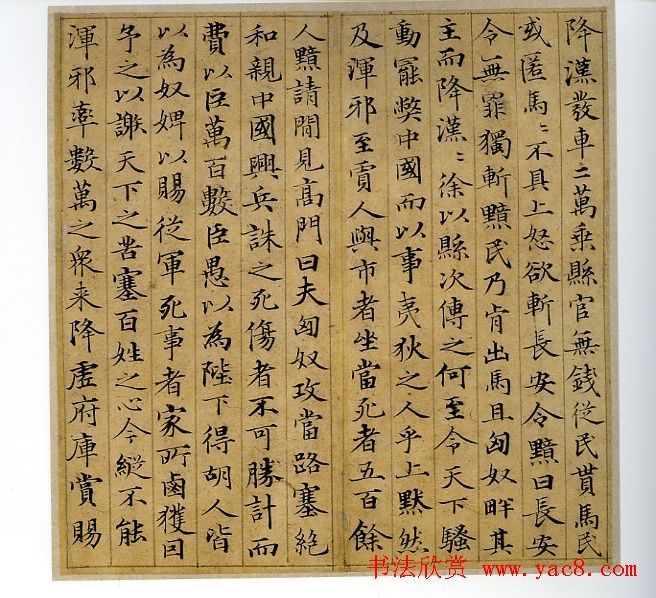 降漢發車二萬乘縣官無錢從民貰馬民
或匿馬〻不具上怒欲斬長安令黯曰長安
令無罪獨斬黯民乃肯出馬且匈奴畔其
主而降漢〻徐以縣次傳之何至令天下騷
動罷弊中國而以事夷狄之人乎上默然
及渾邪至賈人與市者坐當死者五百餘
人黯請閒見高門曰夫匈奴攻當路塞絕
和親中國興兵誅之死傷者不可勝計而
費以巨萬百數臣愚以為陛下得胡人皆
以為奴婢以賜從軍死事者家所鹵獲因
予之以謝天下之苦塞百姓之心今縱不能
渾邪率數萬之眾来降虛府庫賞賜
书法欣赏 www.yac8.com